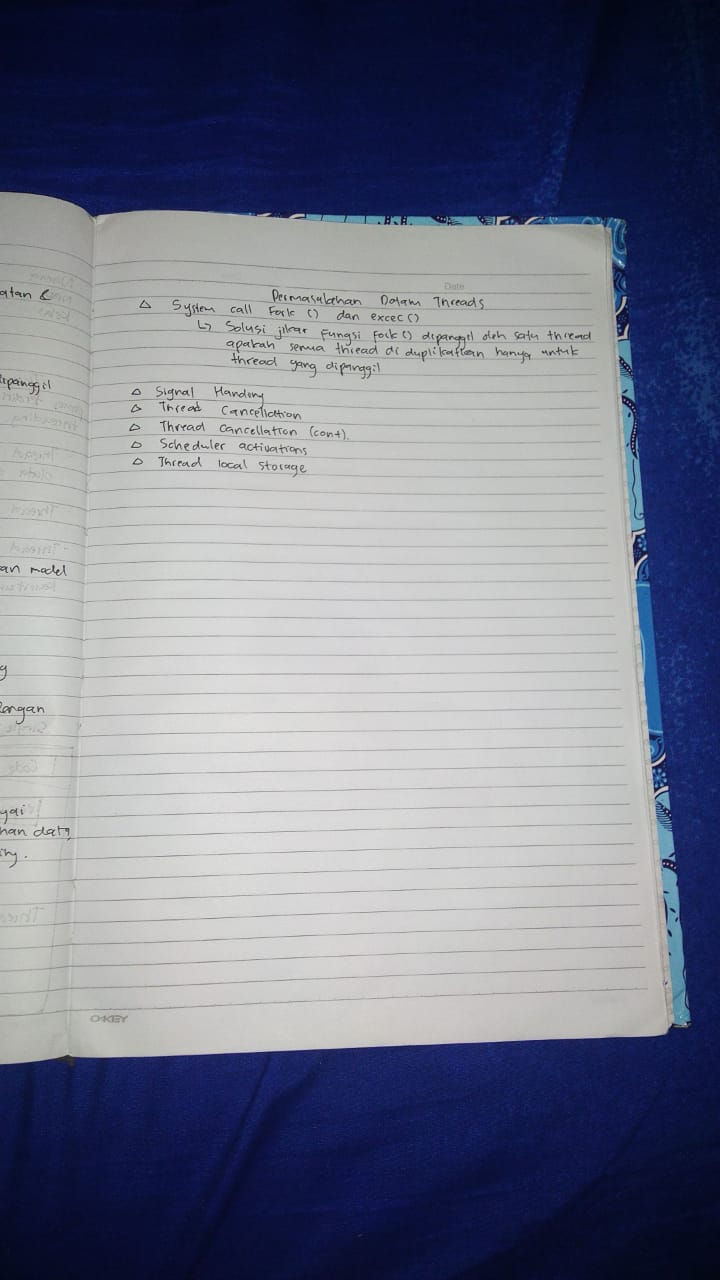 atan &
ipanggil
an model
g
angan
gai
han data
Date
Permasalahan Dalam Threads
△ System call Fork () dan excec ()
↳ Solusi jikar Fungsi Fock () dipanggil oleh satu thread
apakah semua thread di duplikatkan hanya untuk
thread yang dipanggil
△ Signal Handling
△ Thread Cancellation
△ Thread cancellation (cont).
△ Scheduler activations
△ Thread local storage
O-KEY